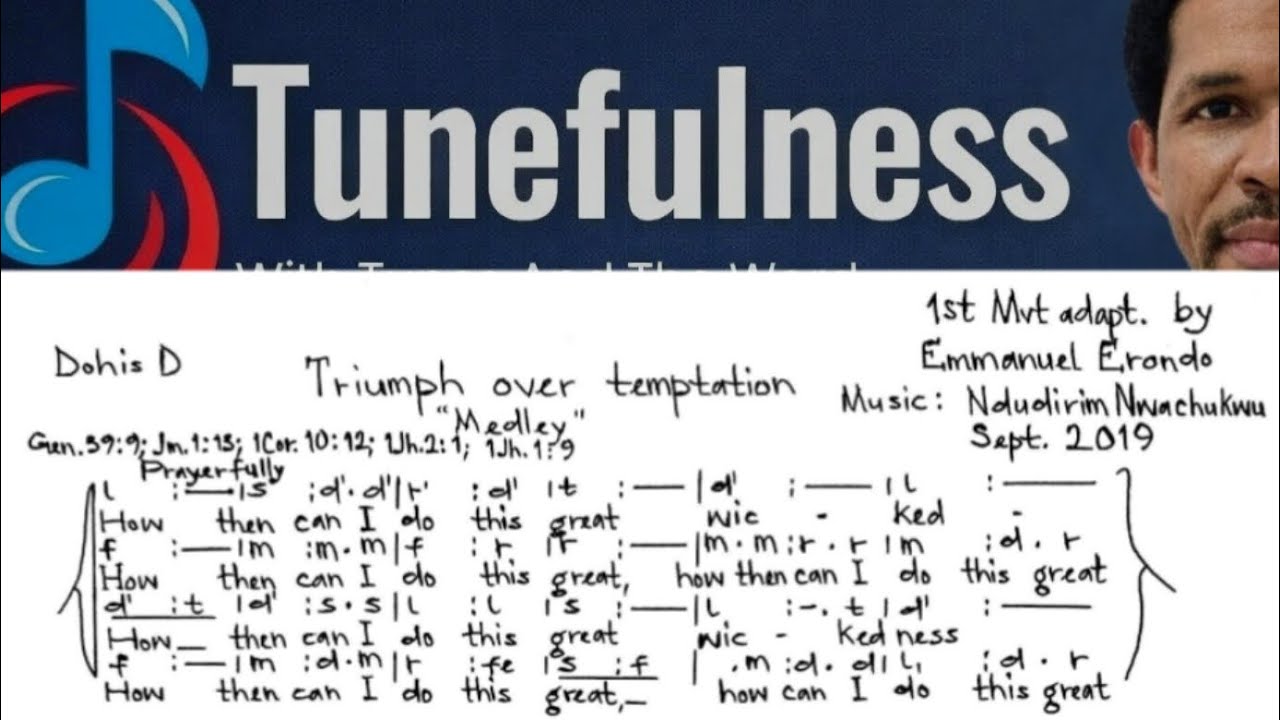 Tunefulness
1st Mvt adapt. by
Doh is D
Emmanuel Erondo
Triumph over temptation
Music: Ndudirim Nwachukwu
"Medley"
Sept. 2019
Gen. 39:9; Jm. 1:13; 1Cor. 10:12; 1Jh. 2:1; 1Jh. 1:9
Prayerfully
l :— |s :d'.d'|r' :d' |t :— |d' :— |l :—
How then can I do this great wic - ked -
f :— |m :m.m|f :r |r :— |m.m:r.r|m :d.r
How then can I do this great, how then can I do this great
d' :t |d' :s.s|l :l |s :— |l :-.t|d' :—
How_ then can I do this great wic - ked ness
f :— |m :d.m|r :fe |s :f | .m:d.d|l, :d.r
How then can I do this great,_ how can I do this great